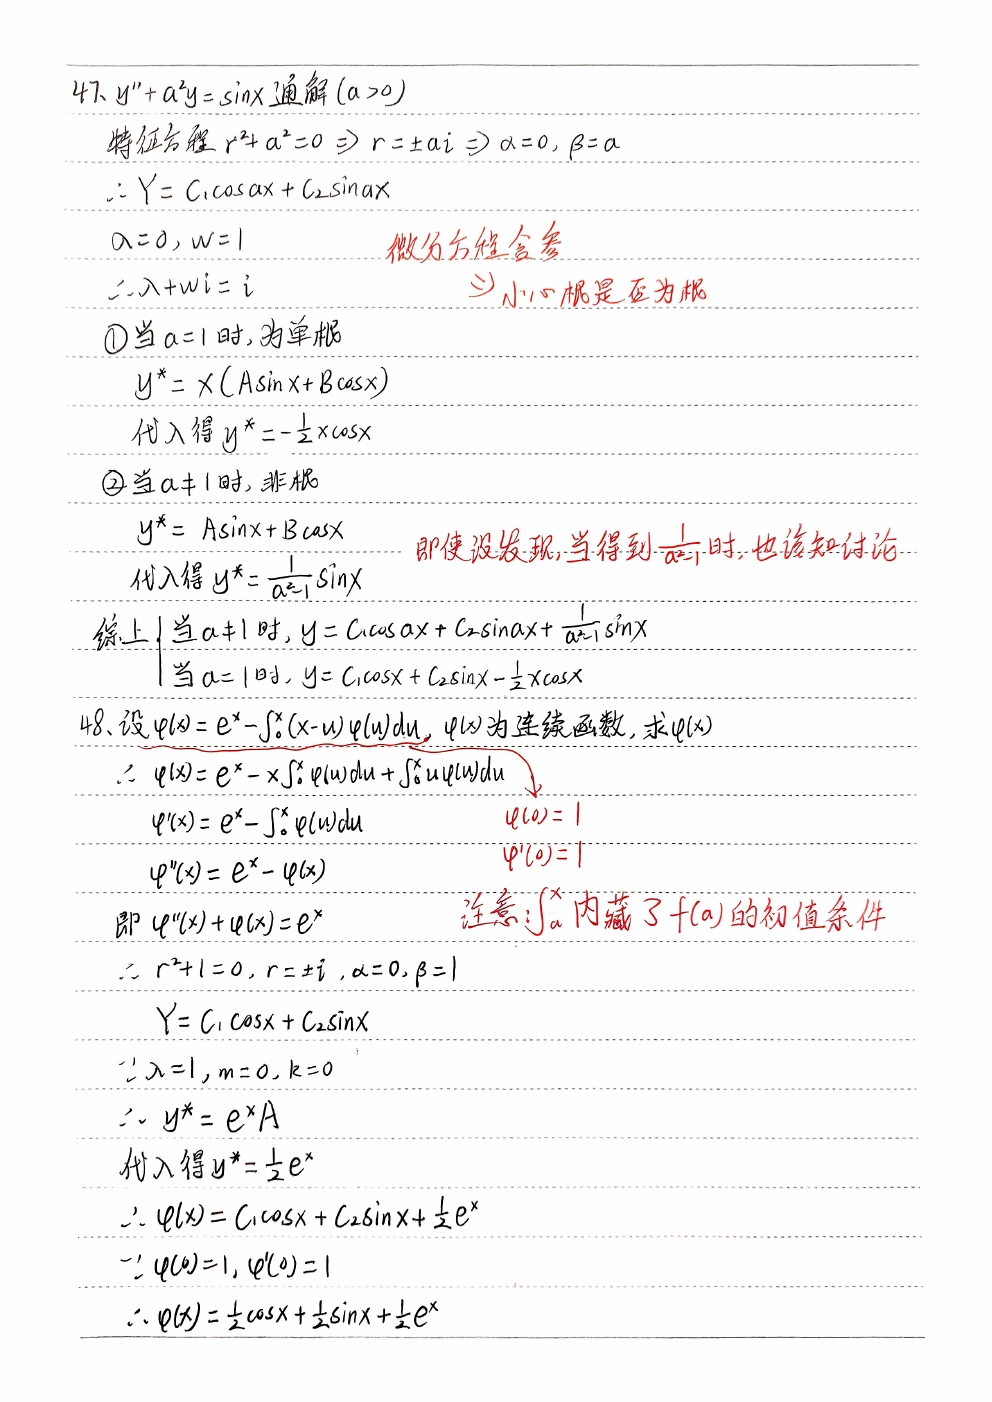 47、y″+a²y=sinx通解(a>0)
特征方程 r²+a²=0 ⇒ r=±ai ⇒ α=0, β=a
∴ Y=C₁cosax+C₂sinax
λ=0, w=1
微分方程含参
∴ λ+wi=i
⇒ 小心根是否为根
①当a=1时, 为单根
y*=x(Asinx+Bcosx)
代入得 y*=-1/2 xcosx
②当a≠1时, 非根
y*= Asinx+Bcosx
即使没发现, 当得到 1/(a²-1) 时, 也该知讨论
代入得 y*= 1/(a²-1) sinx
综上 当a≠1时, y=C₁cosax+C₂sinax+ 1/(a²-1) sinx
当a=1时, y=C₁cosx+C₂sinx-1/2 xcosx
48、设φ(x)=eˣ-∫₀ˣ(x-u)φ(u)du, φ(x)为连续函数, 求φ(x)
∴ φ(x)=eˣ-x∫₀ˣφ(u)du+∫₀ˣuφ(u)du
φ(0)=1
φ′(x)=eˣ-∫₀ˣφ(u)du
φ′(0)=1
φ″(x)=eˣ-φ(x)
注意:∫ₐˣ内藏了f(a)的初值条件
即 φ″(x)+φ(x)=eˣ
∴ r²+1=0, r=±i, α=0, β=1
Y=C₁cosx+C₂sinx
∵ λ=1, m=0, k=0
∴ y*=eˣA
代入得y*=1/2 eˣ
∴ φ(x)=C₁cosx+C₂sinx+1/2 eˣ
∵ φ(0)=1, φ′(0)=1
∴ φ(x)=1/2 cosx+1/2 sinx+1/2 eˣ